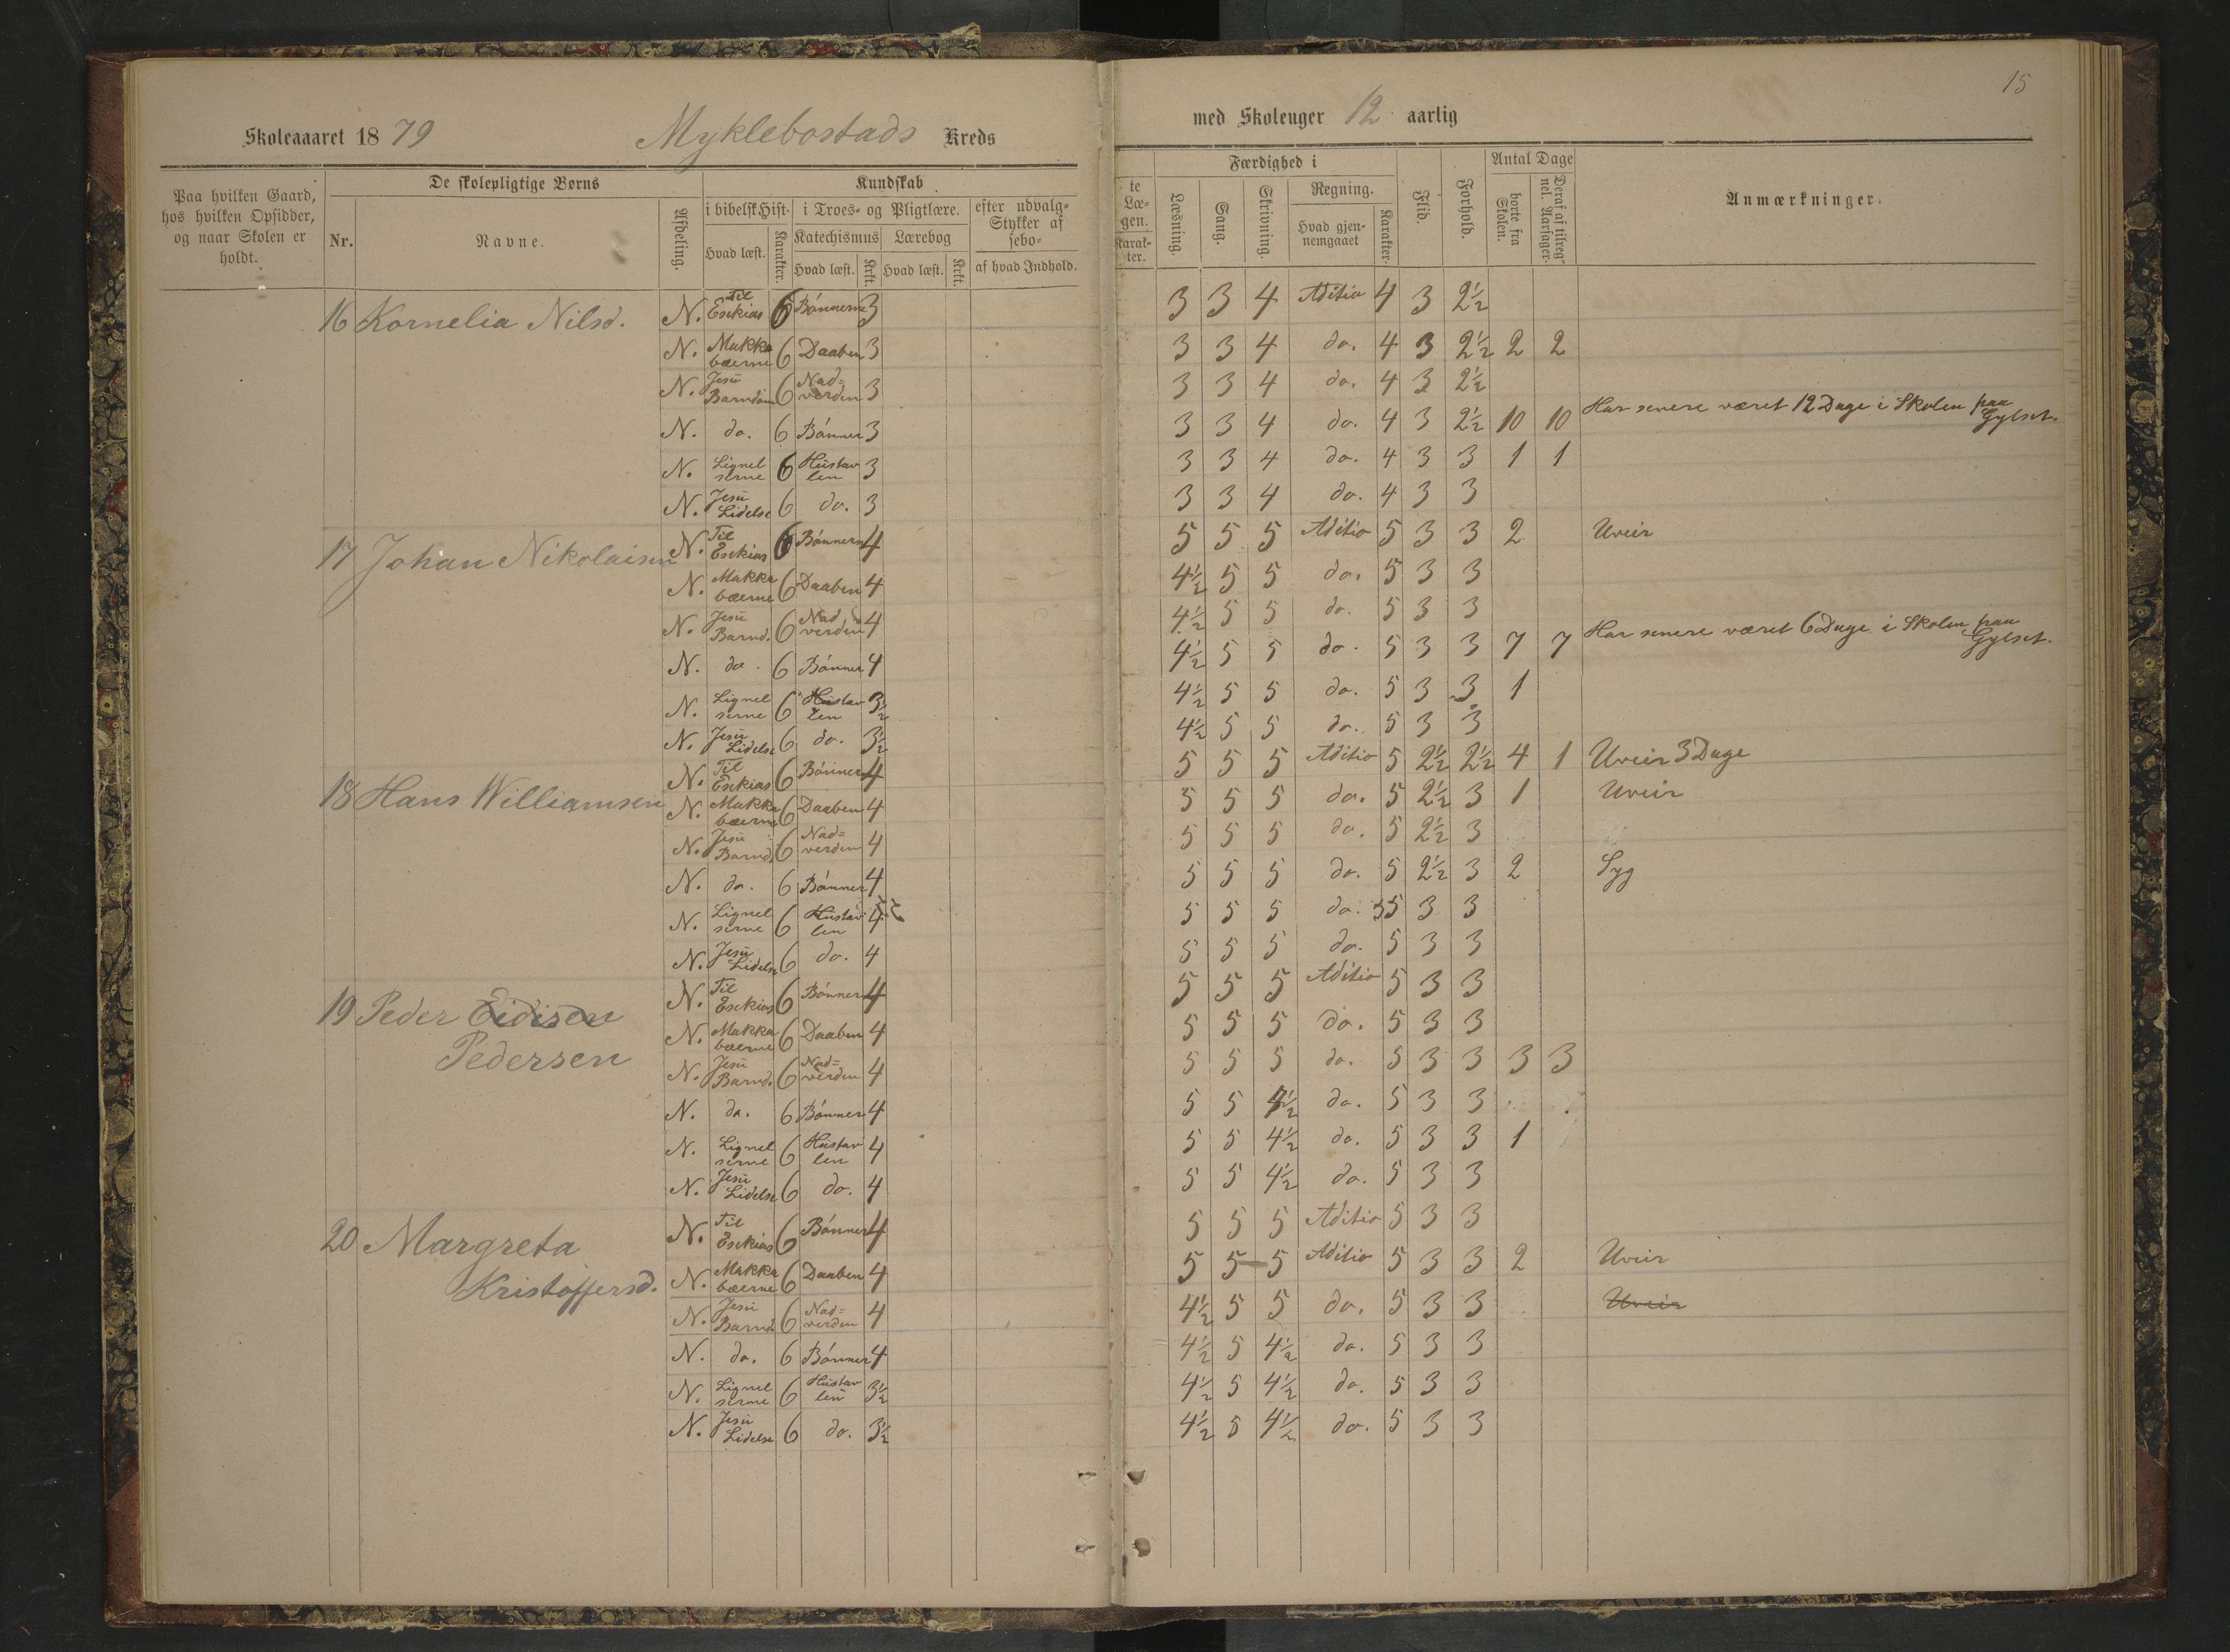 15
Skoleaaret 1879 Myklebostads Kreds med Skoleuger 12 aarlig
Paa hvilken Gaard, hos hvilken Opsidder, og naar Skolen er holdt.
De skolepligtige Børns
Nr. Navne. Afdeling.
Kundskab
i bibelsk Hist. i Troes- og Pligtlære. efter udvalg-
Stykker af
sebo=
Hvad læst. Karakter. Katechismus Lærebog
Hvad læst. Krkt. Hvad læst. Krkt. af hvad Indhold.
te
Læ-
gen.
Karak-
ter.
Færdighed i
Læsning. Sang. Skrivning. Regning.
Hvad gjen-
nemgaaet Karakter.
Flid. Forhold. Antal Dage
borte fra Skolen. Deraf af tilreg-
nel. Aarsager.
Anmærkninger.
16 Kornelia Nilsd. N. Til Esekias 6 Bønnerne 3 3 3 4 Aditio 4 3 2½
N. Makka bæerne 6 Daaben 3 3 3 4 do. 4 3 2½ 2 2
N. Jesu Barndom 6 Nad= verden 3 3 3 4 do. 4 3 2½
N. do. 6 Bønner 3 3 3 4 do. 4 3 2½ 10 10 Har senere været 12 Dage i Skolen paa Gylset.
N. Lignel serne 6 Hustav len 3 3 3 4 do. 4 3 3 1 1
N. Jesu Lidelse 6 do. 3 3 3 4 do. 4 3 3
17 Johan Nikolaisen N. Til Esekias 6 Bønnern 4 5 5 5 Aditio 5 3 3 2 Uveir
N. Makka bæerne 6 Daaben 4 4½ 5 5 do. 5 3 3
N. Jesu Barnd. 6 Nad verden 4 4½ 5 5 do. 5 3 3
N. do. 6 Bønner 4 4½ 5 5 do. 5 3 3 7 7 Har senere været 6 Dage i Skolen paa Gylset.
N. Lignel serne 6 Hustav len 3½ 4½ 5 5 do. 5 3 3 1
N. Jesu Lidelse 6 do. 3½ 4½ 5 5 do. 5 3 3
18 Hans Williamsen N. Til Esekias 6 Bønner 4 5 5 5 Aditio 5 2½ 2½ 4 1 Uveir 3 Dage
N. Makka bæerne 6 Daaben 4 5 5 5 do. 5 2½ 3 1 Uveir
N. Jesu Barnd. 6 Nad= verden 4 5 5 5 do. 5 2½ 3
N. do. 6 Bønner 4 5 5 5 do. 5 2½ 3 2 Syg
N. Lignel serne 6 Hustav len 4 5 5 5 do. 5 3 3
N. Jesu Lidelse 6 do. 4 5 5 5 do. 5 3 3
19 Peder Eidisen Pedersen N. Til Esekias 6 Bønner 4 5 5 5 Aditio 5 3 3
N. Makka bæerne 6 Daaben 4 5 5 5 do. 5 3 3
N. Jesu Barnd. 6 Nad= verden 4 5 5 5 do. 5 3 3 3 3
N. do. 6 Bønner 4 5 5 4½ do. 5 3 3
N. Lignel serne 6 Hustav len 4 5 5 4½ do. 5 3 3 1
N. Jesu Lidelse 6 do. 4 5 5 4½ do. 5 3 3
20 Margreta Kristoffersd. N. Til Esekias 6 Bønner 4 5 5 5 Aditio 5 3 3
N. Makka bæerne 6 Daaben 4 5 5 5 Aditio 5 3 3 2 Uveir
N. Jesu Barnd. 6 Nad= verden 4 4½ 5 5 do. 5 3 3 Uveir
N. do. 6 Bønner 4 4½ 5 4½ do. 5 3 3
N. Lignel serne 6 Hustav len 3½ 4½ 5 4½ do. 5 3 3
N. Jesu Lidelse 6 do. 3½ 4½ 5 4½ do. 5 3 3